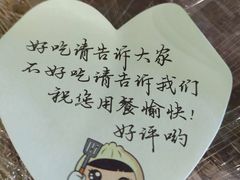 好吃请告诉大家
不好吃请告诉我们
祝您用餐愉快!
好评哟